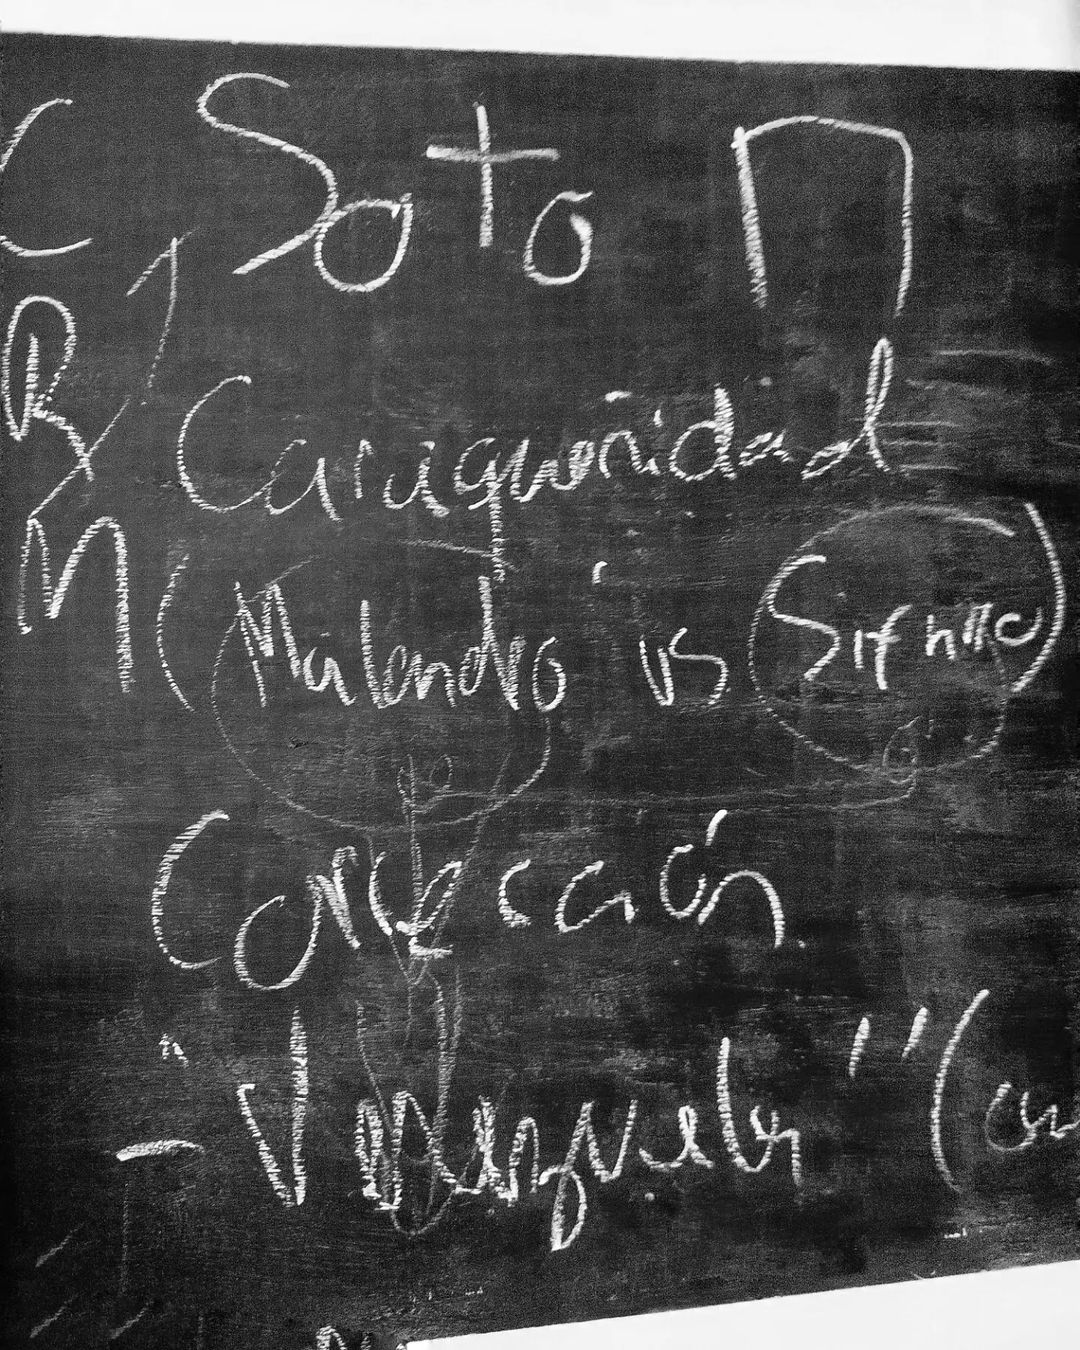 C Soto
R Caraqueñidad
M (Malandro vs Sifrino)
Coro
"Venezuela" (